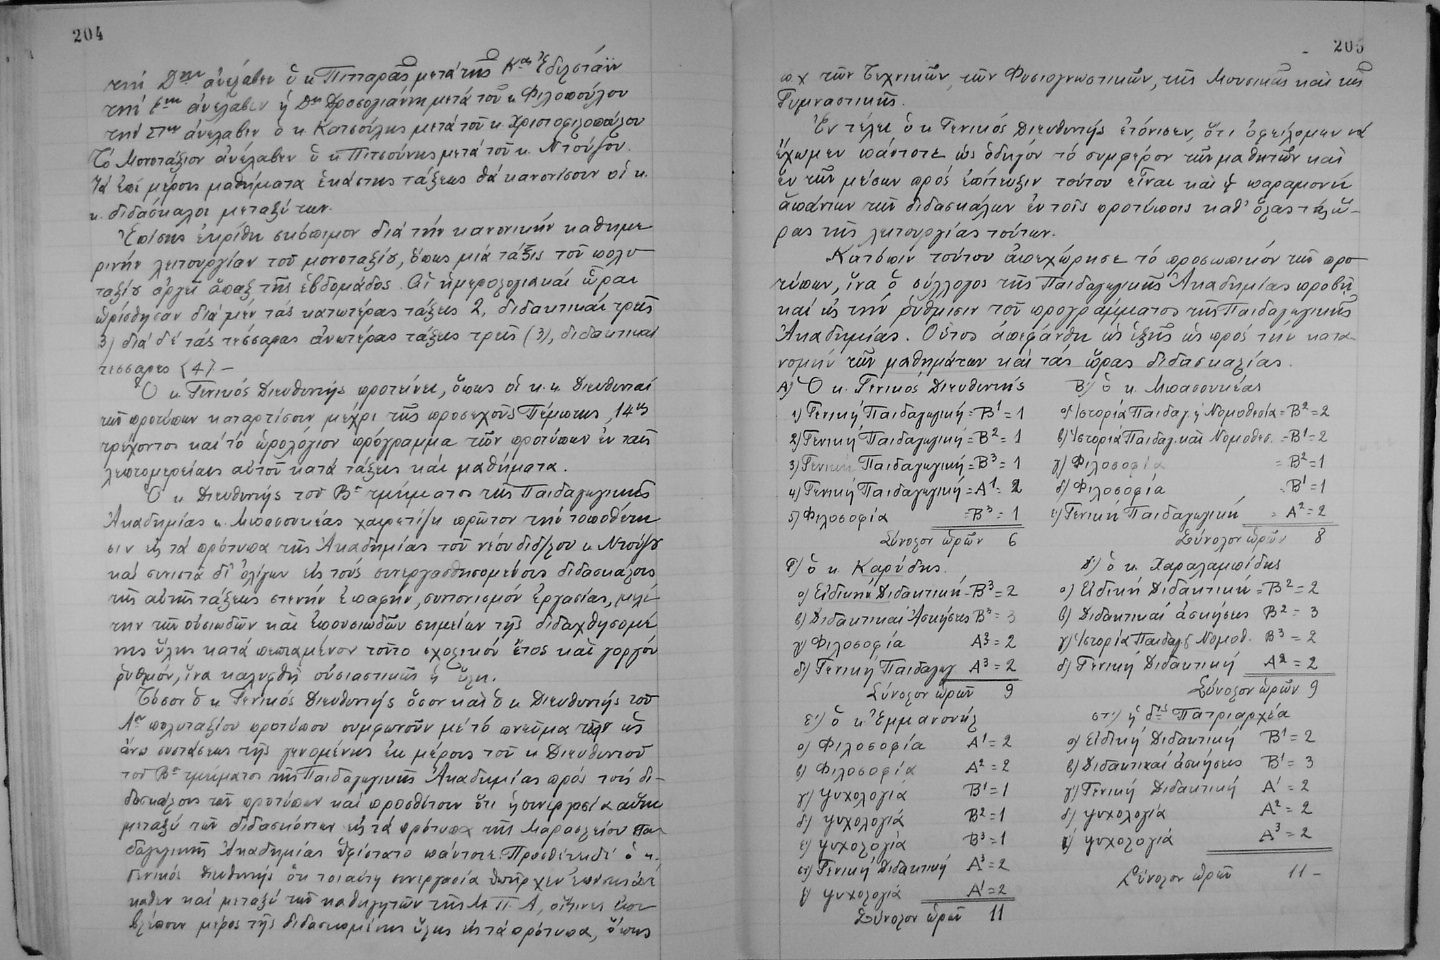 204
τὴν Δην ἀνέλαβεν ὁ κ Πιτταρᾶς μετὰ τῆς
τὴν Ε ἀνέλαβεν ἡ Δνὶς Δροσογιάννη μετὰ τοῦ κ. Φιλοπούλου
τὴν ΣΤην ἀνέλαβεν ὁ κ Κατσούλης μετὰ τοῦ κ Χριστοφιλοπούλου
Τὸ Μονοτάξιον ἀνέλαβεν ὁ κ Πιτσούνης μετὰ τοῦ κ. Ντούζου.
Τὰ ἐπὶ μέρους μαθήματα ἑκάστης τάξεως θὰ κανονίσουν οἱ κ.
κ. διδάσκαλοι μεταξύ των.
Ἐπίσης ἐκρίθη σκόπιμον διὰ τὴν κανονικὴν καθημε
ρινὴν λειτουργίαν τοῦ μονοταξίου, ὅπως μιὰ τάξις τοῦ πολυ
ταξίου ἀργῇ ἅπαξ τῆς ἑβδομάδος. Αἱ ἡμερολογιακαὶ ὧραι
ὡρίσθησαν διὰ μὲν τὰς κατωτέρας τάξεις 2, διδακτικαὶ τρεῖς
3) διὰ δὲ τὰς τέσσαρας ἀνωτέρας τάξεις τρεῖς (3), διδακτικαὶ
τέσσαρες (4) –
Ὁ κ. Γενικὸς Διευθυντὴς προτείνει, ὅπως οἱ κ.κ. Διευθυνταὶ
τῶν προτύπων καταρτίσουν μέχρι τῆς προσεχοῦς Πέμπτης, 14ης
τρέχοντος καὶ τὸ ὡρολόγιον πρόγραμμα τῶν προτύπων ἐν ταῖς
λεπτομερείαις αὐτοῦ κατὰ τάξεις καὶ μαθήματα.
Ὁ κ Διευθυντὴς τοῦ Β τμήματος τῆς Παιδαγωγικῆς
Ἀκαδημίας κ. Μπασουκέας χαιρετίζει πρῶτον τὴν τοποθέτη
σιν εἰς τὰ πρότυπα τῆς Ἀκαδημίας τοῦ νέου διδ/λου κ Ντούζου
καὶ συνιστᾶ δι' ὀλίγων εἰς τοὺς συνεργασθησομένους διδασκάλους
τῆς αὐτῆς τάξεως στενὴν ἐπαφήν, συντονισμὸν ἐργασίας, μελέ
την τῶν οὐσιωδῶν καὶ ἐπουσιωδῶν σημείων τῆς διδαχθησομέ
νης ὕλης κατὰ τὸ σχολικὸν ἔτος καὶ γοργὸν
ρυθμόν, ἵνα καλυφθῇ οὐσιαστικῶς ἡ ὕλη.
Τόσον ὁ κ Γενικὸς Διευθυντὴς ὅσον καὶ ὁ κ Διευθυντὴς τοῦ
Α πολυταξίου προτύπου συμφωνοῦν μὲ τὸ πνεῦμα τῆς ὡς
ἄνω συστάσεως τῆς γενομένης ἐκ μέρους τοῦ κ Διευθυντοῦ
τοῦ Β τμήματος τῆς Παιδαγωγικῆς Ἀκαδημίας πρὸς τοὺς δι-
δασκάλους τῶν προτύπων καὶ προσθέτουν ὅτι ἡ συνεργασία αὕτη
μεταξὺ τῶν διδασκόντων εἰς τὰ πρότυπα τῆς Μαρασλείου Παι
δαγωγικῆς Ἀκαδημίας ὑφίστατο πάντοτε. Προσθέτει δὲ ὁ κ.
Γενικὸς Διευθυντὴς ὅτι τοιαύτη συνεργασία ὑπῆρχεν
καὶ μεταξὺ τῶν καθηγητῶν τῆς Μ.Π.Α, οἵτινες
μέρος τῆς διδασκομένης ὕλης εἰς τὰ πρότυπα, ὅπως
205
π χ τῶν Τεχνικῶν, τῶν Φυσιογνωστικῶν, τῆς Μουσικῆς καὶ τῆς
Γυμναστικῆς.
Ἐν τέλει ὁ κ Γενικὸς Διευθυντὴς ἐτόνισεν, ὅτι ὀφείλομεν νὰ
ἔχωμεν πάντοτε ὡς ὁδηγὸν τὸ συμφέρον τῶν μαθητῶν καὶ
ἓν τῶν μέσων πρὸς ἐπίτευξιν τούτου εἶναι καὶ ἡ παραμονὴ
ἁπάντων τῶν διδασκάλων ἐν τοῖς προτύποις καθ' ὅλας τὰς ὥ-
ρας τῆς λειτουργίας τούτων.
Κατόπιν τούτου ἀπεχώρησε τὸ προσωπικὸν τῶν προ-
τύπων, ἵνα ὁ σύλλογος τῆς Παιδαγωγικῆς Ἀκαδημίας προβῇ
καὶ εἰς τὴν ρύθμισιν τοῦ προγράμματος τῆς Παιδαγωγικῆς
Ἀκαδημίας. Οὗτος ἀπεφάνθη ὡς ἑξῆς ὡς πρὸς τὴν κατα-
νομὴν τῶν μαθημάτων καὶ τὰς ὥρας διδασκαλίας.
Α) Ὁ κ. Γενικὸς Διευθυντὴς
1) Γενικὴ Παιδαγωγική = Β1 = 1
2) Γενικὴ Παιδαγωγική = Β2 = 1
3) Γενικὴ Παιδαγωγική = Β3 = 1
4) Γενικὴ Παιδαγωγική = Α1 = 2
5) Φιλοσοφία =Β3 = 1
Σύνολον ὡρῶν 6
Β') ὁ κ. Μπασουκέας
α) Ἱστορία Παιδαγ ἢ Νομοθεσία = Β2 = 2
β) Ἱστορία Παιδαγ. καὶ Νομοθεσ. = Β1 = 2
γ) Φιλοσοφία = Β2 = 1
δ) Φιλοσοφία = Β1 = 1
ε) Γενικὴ Παιδαγωγική = Α2 = 2
Σύνολον ὡρῶν 8
Γ) ὁ κ. Καρύδης.
α) Εἰδικὴ Διδακτική = Β3 = 2
β) Διδακτικαὶ Ἀσκήσεις Β3 = 3
γ) Φιλοσοφία Α3 = 2
δ) Γενικὴ Παιδαγωγ Α3 = 2
Σύνολον ὡρῶν 9
Δ') ὁ κ. Χαραλαμπίδης
α) Εἰδικὴ Διδακτική = Β2 = 2
β) Διδακτικαὶ ἀσκήσεις Β2 = 3
γ) Ἱστορία Παιδαγ. Νομοθ. Β3 = 2
δ) Γενικὴ Διδακτικὴ Α2 = 2
Σύνολον ὡρῶν 9
Ε') ὁ κ Ἐμμανουὴλ
α) Φιλοσοφία Α1 = 2
β) Φιλοσοφία Α2 = 2
γ) Ψυχολογία Β1 = 1
δ) Ψυχολογία Β2 = 1
ε) Ψυχολογία Β3 = 1
στ) Γενικὴ Διδακτικὴ Α3 = 2
ζ) Ψυχολογία Α1 = 2
Σύνολον ὡρῶν 11
ΣΤ') ἡ δνὶς Πατριαρχέα
α) Εἰδικὴ Διδακτικὴ Β1 = 2
β) Διδακτικαὶ ἀσκήσεις Β1 = 3
γ) Γενικὴ Διδακτικὴ Α1 = 2
δ) Ψυχολογία Α2 = 2
ε) Ψυχολογία Α3 = 2
Σύνολον ὡρῶν 11 –